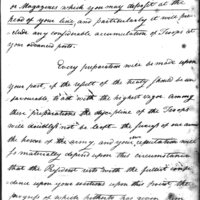 or Magazines which you may deposit at the
head of your line, and particularly it will pre-
clude any considerable accumulation of Troops at
your advanced posts.
Every preparation will be made upon
your part, if the result of the treaty should be un-
favourable to act with the highest vigor. Among
these preparations the discipline of the Troops
will doubtless not be least. The safety of our army
the honor of the army, and your reputation will
so materially depend upon this circumstance
that the President rests with the fullest confi-
dence upon your exertions upon this point. The
proofs of which hitherto